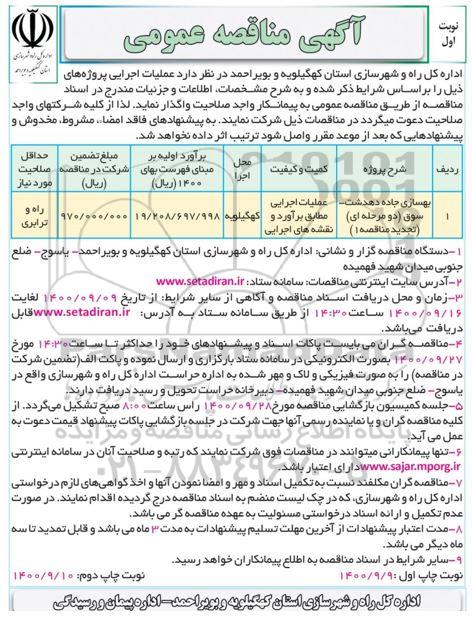 نوبت
اول
آگهی مناقصه عمومی
اداره کل راه و شهرسازی استان کهگیلویه و بویراحمد در نظر دارد عملیات اجرایی پروژه‌های
ذیل را براساس شرایط ذکر شده و به شرح مشخصات، اطلاعات و جزئیات مندرج در اسناد
مناقصه از طریق مناقصه عمومی به پیمانکار واجد صلاحیت واگذار نماید. لذا از کلیه شرکتهای واجد
صلاحیت دعوت میگردد در مناقصات ذیل شرکت نمایند. به پیشنهادهای فاقد امضاء، مشروط، مخدوش و
پیشنهادهایی که بعد از موعد مقرر واصل شود ترتیب اثر داده نخواهد شد.
ردیف شرح پروژه کمیت و کیفیت محل اجرا برآورد اولیه بر مبنای فهرست بهای ۱۴۰۰(ریال) مبلغ تضمین شرکت در مناقصه (ریال) حداقل صلاحیت مورد نیاز
۱ بهسازی جاده دهدشت- سوق (دو مرحله ای) (تجدید مناقصه۱) عملیات اجرایی مطابق برآورد و نقشه های اجرایی کهگیلویه ۱۹/۲۰۸/۶۹۷/۹۹۸ ۹۷۰/۰۰۰/۰۰۰ راه و ترابری
۱-دستگاه مناقصه گزار و نشانی: اداره کل راه و شهرسازی استان کهگیلویه و بویراحمد- یاسوج- ضلع
جنوبی میدان شهید فهمیده
۲-آدرس سایت اینترنتی مناقصات: سامانه ستاد: www.setadiran.ir
۳-زمان و محل دریافت اسناد مناقصه و آگاهی از سایر شرایط: از تاریخ ۱۴۰۰/۰۹/۰۹ لغایت
۱۴۰۰/۰۹/۱۶ ساعت ۱۴:۳۰ از طریق سامانه ستاد به آدرس: www.setadiran.ir قابل
دریافت می‌باشد.
۴-مناقصه گران می بایست پاکات اسناد و پیشنهادهای خود را حداکثر تا ساعت ۱۴:۳۰ مورخ
۱۴۰۰/۰۹/۲۷ بصورت الکترونیکی در سامانه ستاد بارگزاری و ارسال نموده و پاکت الف(تضمین شرکت
در مناقصه) را به صورت فیزیکی و لاک و مهر شده به اداره حراست اداره کل راه و شهرسازی واقع در
یاسوج- ضلع جنوبی میدان شهید فهمیده- دبیرخانه حراست تحویل و رسید دریافت دارند.
۵-جلسه کمیسیون بازگشایی مناقصه مورخ ۱۴۰۰/۰۹/۲۸ راس ساعت ۸:۰۰ صبح تشکیل می‌گردد. از
کلیه مناقصه گران و یا نماینده رسمی آنها جهت شرکت در جلسه بازگشایی پاکات پیشنهاد قیمت دعوت به
عمل می آید.
۶-تنها پیمانکارانی میتوانند در مناقصات فوق شرکت نمایند که رتبه و صلاحیت آنان در سامانه اینترنتی
www.sajar.mporg.ir دارای اعتبار باشد.
۷-مناقصه گران مکلفند نسبت به تکمیل اسناد و مهر و امضا نمودن آنها و اخذ گواهی‌های لازم درخواستی
اداره کل راه و شهرسازی، که در چک لیست منضم به اسناد مناقصه درج گردیده اقدام نمایند. در صورت
عدم تکمیل و ارائه اسناد درخواستی مسئولیت به عهده مناقصه گر می باشد.
۸-مدت اعتبار پیشنهادات از آخرین مهلت تسلیم پیشنهادات به مدت ۳ ماه می باشد و قابل تمدید تا سه
ماه دیگر می باشد.
۹-سایر شرایط در اسناد مناقصه به اطلاع پیمانکاران خواهد رسید.
نوبت چاپ اول :۱۴۰۰/۹/۹ نوبت چاپ دوم: ۱۴۰۰/۹/۱۰
اداره کل راه و شهرسازی استان کهگیلویه و بویراحمد- اداره پیمان و رسیدگی